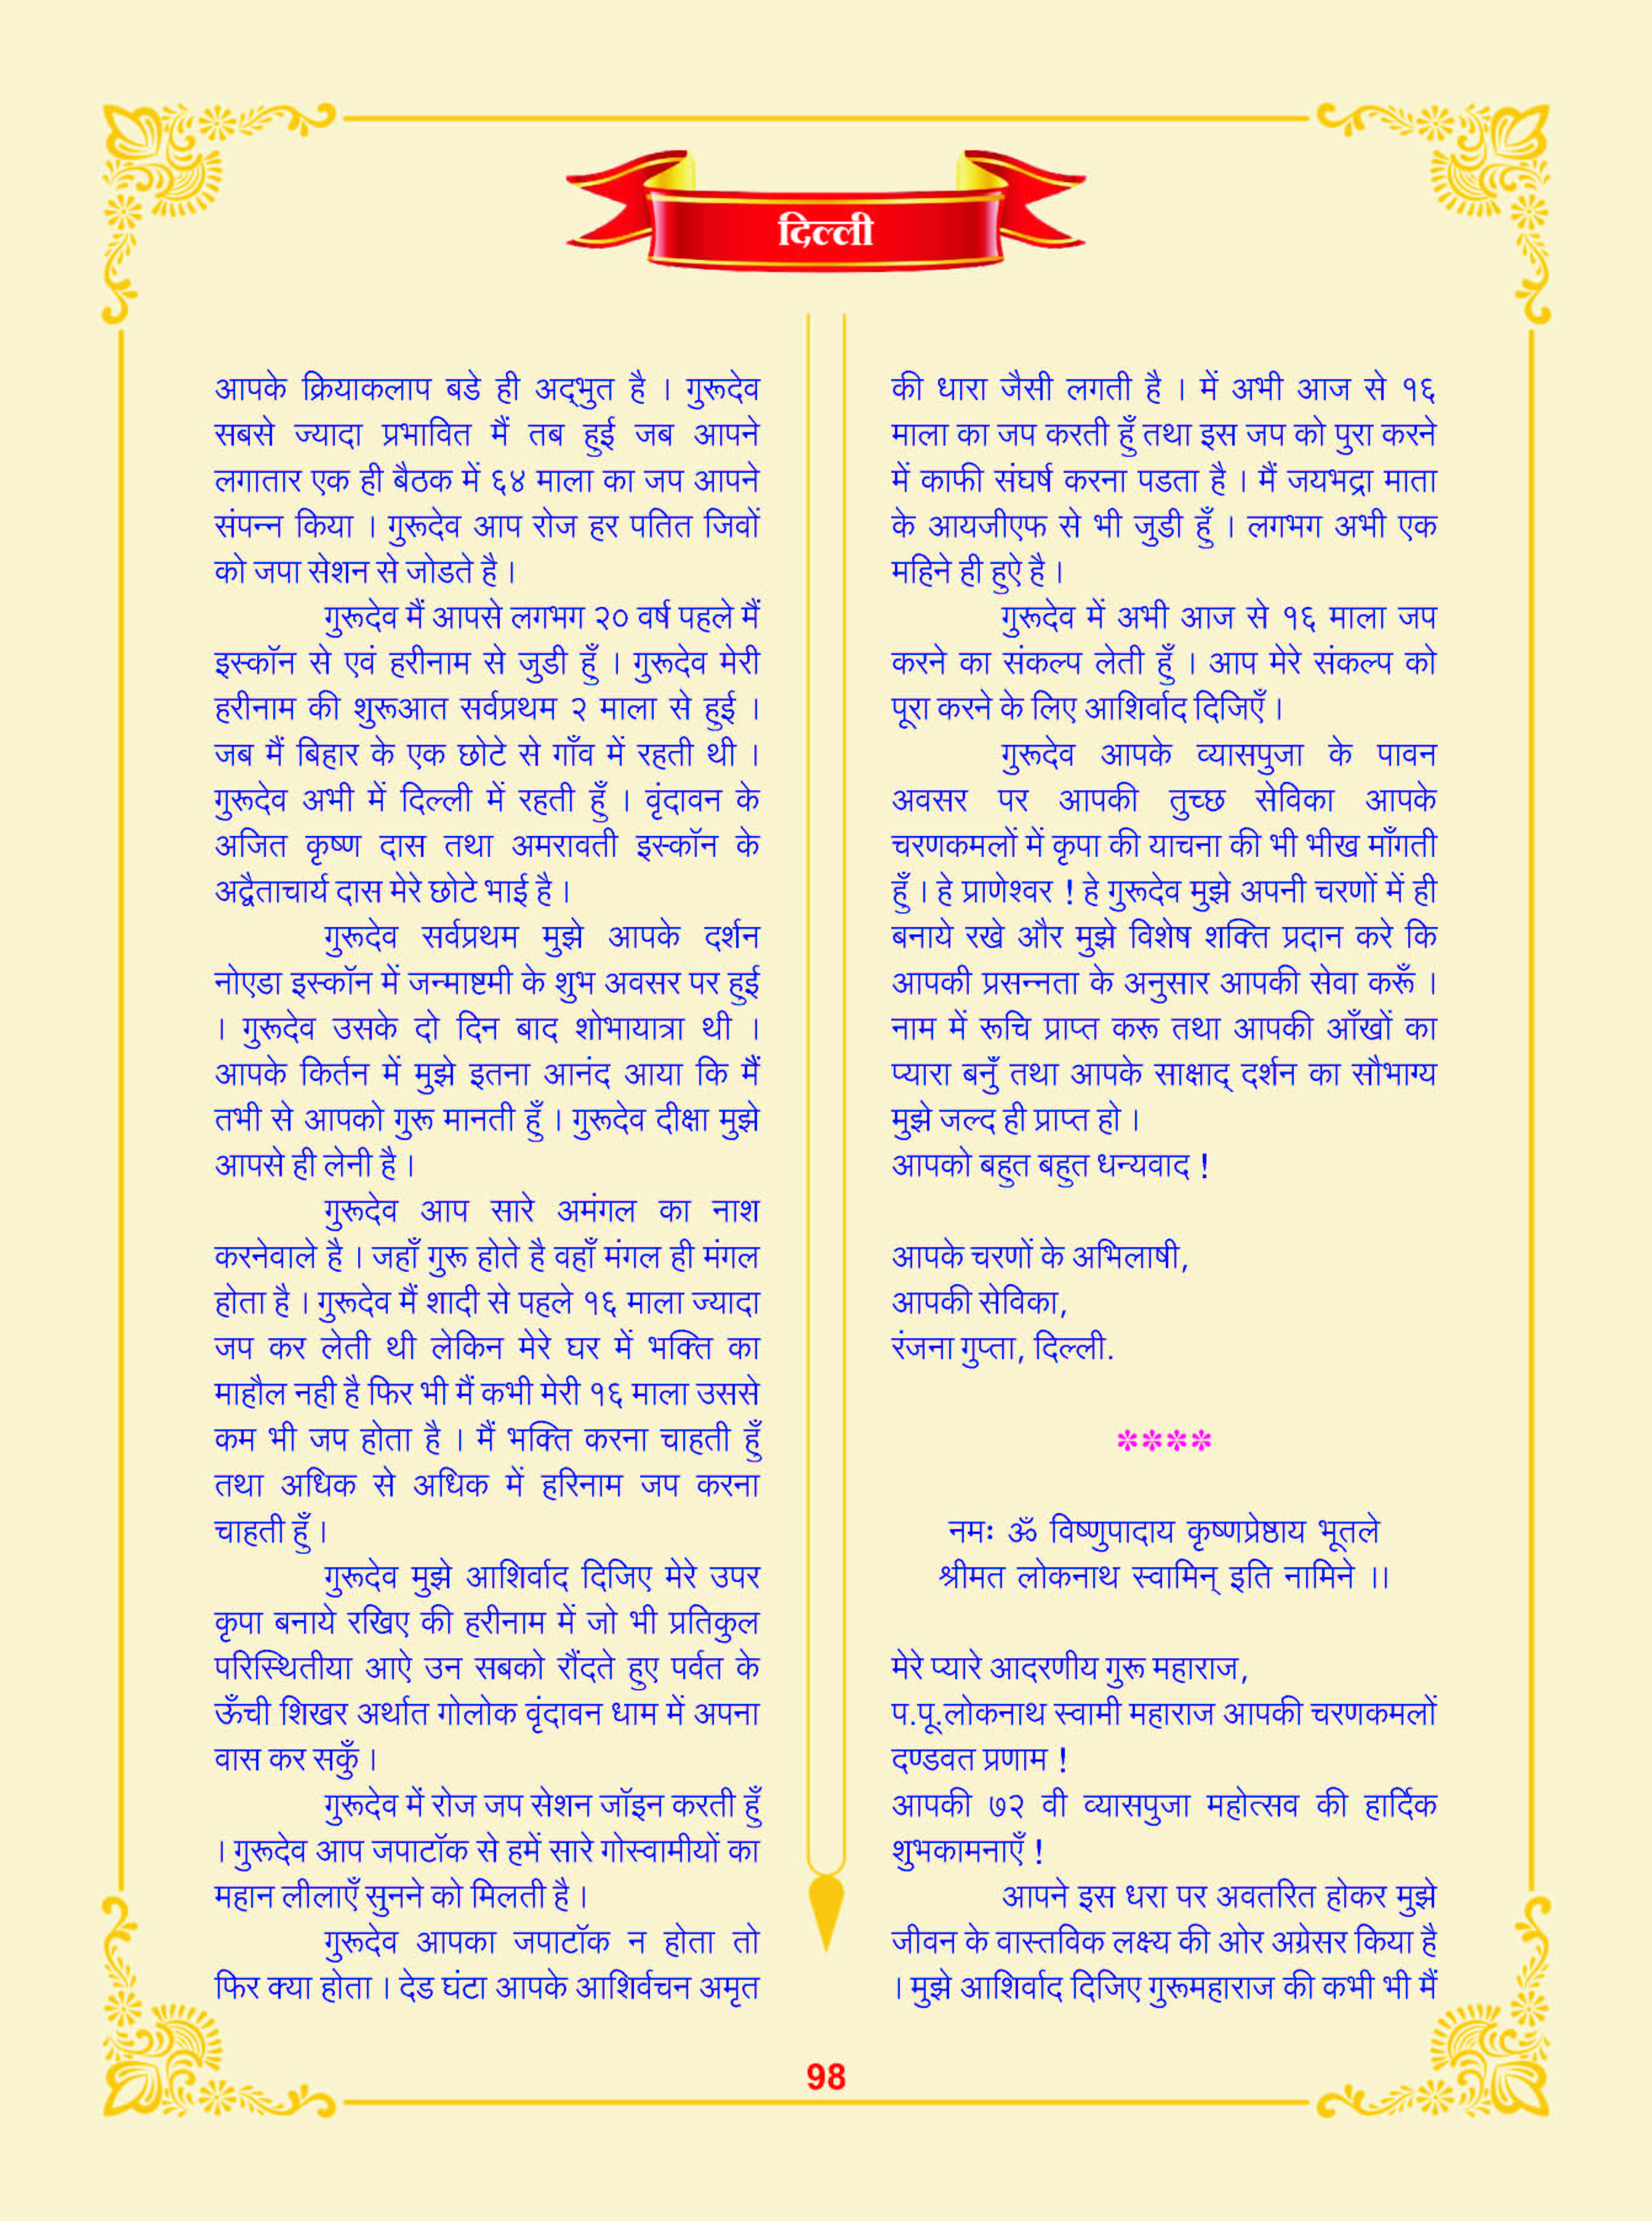 दिल्ली
आपके क्रियाकलाप बडे ही अद्भुत है । गुरूदेव
सबसे ज्यादा प्रभावित मैं तब हुई जब आपने
लगातार एक ही बैठक में ६४ माला का जप आपने
संपन्न किया । गुरूदेव आप रोज हर पतित जिवों
को जपा सेशन से जोडते है ।
गुरूदेव मैं आपसे लगभग २० वर्ष पहले मैं
इस्कॉन से एवं हरीनाम से जुडी हूँ । गुरूदेव मेरी
हरीनाम की शुरूआत सर्वप्रथम २ माला से हुई ।
जब मैं बिहार के एक छोटे से गाँव में रहती थी ।
गुरूदेव अभी में दिल्ली में रहती हूँ । वृंदावन के
अजित कृष्ण दास तथा अमरावती इस्कॉन के
अद्वैताचार्य दास मेरे छोटे भाई है ।
गुरूदेव सर्वप्रथम मुझे आपके दर्शन
नोएडा इस्कॉन में जन्माष्टमी के शुभ अवसर पर हुई
। गुरूदेव उसके दो दिन बाद शोभायात्रा थी ।
आपके किर्तन में मुझे इतना आनंद आया कि मैं
तभी से आपको गुरू मानती हूँ । गुरूदेव दीक्षा मुझे
आपसे ही लेनी है ।
गुरूदेव आप सारे अमंगल का नाश
करनेवाले है । जहाँ गुरू होते है वहाँ मंगल ही मंगल
होता है । गुरूदेव मैं शादी से पहले १६ माला ज्यादा
जप कर लेती थी लेकिन मेरे घर में भक्ति का
माहौल नही है फिर भी मैं कभी मेरी १६ माला उससे
कम भी जप होता है । मैं भक्ति करना चाहती हूँ
तथा अधिक से अधिक में हरिनाम जप करना
चाहती हूँ ।
गुरूदेव मुझे आशिर्वाद दिजिए मेरे उपर
कृपा बनाये रखिए की हरीनाम में जो भी प्रतिकुल
परिस्थितीया आऐ उन सबको रौंदते हुए पर्वत के
ऊँची शिखर अर्थात गोलोक वृंदावन धाम में अपना
वास कर सकुँ ।
गुरूदेव में रोज जप सेशन जॉइन करती हूँ
। गुरूदेव आप जपाटॉक से हमें सारे गोस्वामीयों का
महान लीलाएँ सुनने को मिलती है ।
गुरूदेव आपका जपाटॉक न होता तो
फिर क्या होता । देड घंटा आपके आशिर्वचन अमृत
की धारा जैसी लगती है । में अभी आज से १६
माला का जप करती हूँ तथा इस जप को पुरा करने
में काफी संघर्ष करना पडता है । मैं जयभद्रा माता
के आयजीएफ से भी जुडी हूँ । लगभग अभी एक
महिने ही हुऐ है ।
गुरूदेव में अभी आज से १६ माला जप
करने का संकल्प लेती हूँ । आप मेरे संकल्प को
पूरा करने के लिए आशिर्वाद दिजिएँ ।
गुरूदेव आपके व्यासपुजा के पावन
अवसर पर आपकी तुच्छ सेविका आपके
चरणकमलों में कृपा की याचना की भी भीख माँगती
हूँ । हे प्राणेश्वर ! हे गुरूदेव मुझे अपनी चरणों में ही
बनाये रखे और मुझे विशेष शक्ति प्रदान करे कि
आपकी प्रसन्नता के अनुसार आपकी सेवा करूँ ।
नाम में रूचि प्राप्त करू तथा आपकी आँखों का
प्यारा बनुँ तथा आपके साक्षाद् दर्शन का सौभाग्य
मुझे जल्द ही प्राप्त हो ।
आपको बहुत बहुत धन्यवाद !
आपके चरणों के अभिलाषी,
आपकी सेविका,
रंजना गुप्ता, दिल्ली.
****
नमः ॐ विष्णुपादाय कृष्णप्रेष्ठाय भूतले
श्रीमत लोकनाथ स्वामिन् इति नामिने ।।
मेरे प्यारे आदरणीय गुरू महाराज,
प.पू.लोकनाथ स्वामी महाराज आपकी चरणकमलों
दण्डवत प्रणाम !
आपकी ७२ वी व्यासपुजा महोत्सव की हार्दिक
शुभकामनाएँ !
आपने इस धरा पर अवतरित होकर मुझे
जीवन के वास्तविक लक्ष्य की ओर अग्रेसर किया है
। मुझे आशिर्वाद दिजिए गुरूमहाराज की कभी भी मैं
98